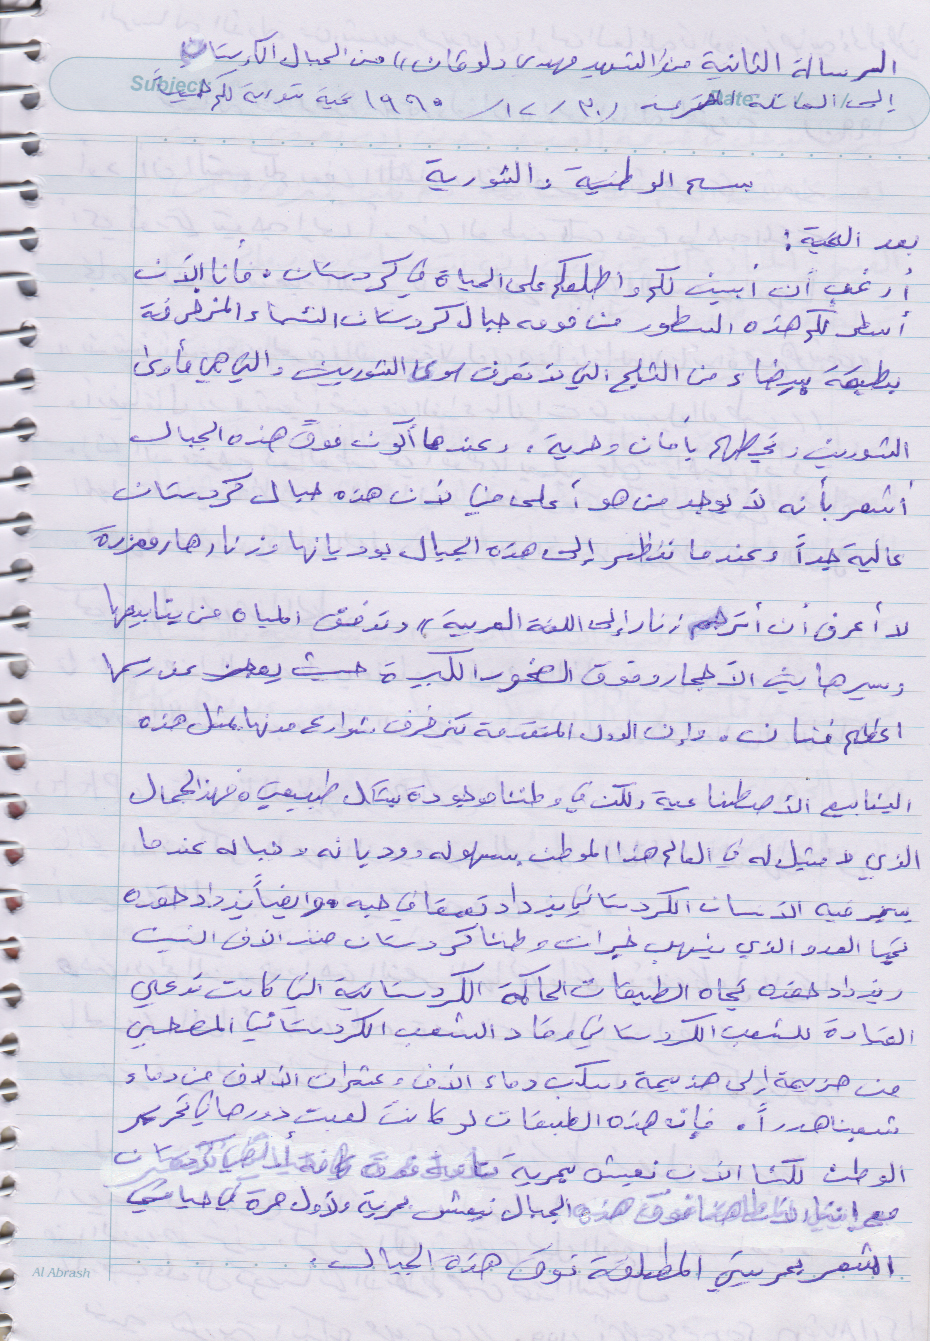 الرسالة الثانية من الشهيد مهدي دلوقان)) من الجبال الكردستان
Subject Date
إلى العائلة ٣٠/ ١٢/ ١٩٩٥ تحية ثورية لكم جميعاً
بسم الوطنية والثورية
بعد التحية:
أرغب أن أبين لكم واطلعكم على الحياة في كردستان. فأنا الآن
أسطر لكم هذه السطور من فوق جبال كردستان الشماء المزخرفة
بطبقة بيضاء من الثلج التي لا تعرف سوى الثوريين والتي هي مأوى
الثوريين وتحيطهم بأمان وحرية، وعندما أكون فوق هذه الجبال
أشعر بأنه لا يوجد من هو أعلى مني لأن هذه جبال كردستان
عالية جداً وعندما ننظر إلى هذه الجبال بوديانها وزنارها
لا أعرف أن أترجم زنار إلى اللغة العربية)) وتدفق المياه من ينابيعها
وسيرها بين الأحجار وفوق الصخور الكبيرة حيث يعجز عن رسمها
اعظم فنان. وإن الدول المتقدمة تزخرف شوارع مدنها بمثل هذه
الينابيع الأصطناعية ولكن في وطننا موجودة بشكل طبيعي فهذا الجمال
الذي لا مثيل له في العالم هذا الوطن بسهوله ووديانه وجباله عندما
يسير فيه الانسان الكردستاني يزداد تعمقا في حبه وايضاً يزداد حقده
تجاه العدو الذي ينهب خيرات وطننا كردستان منذ آلاف السنين
ويزداد حقده تجاه الطبقات الحاكمة الكردستانية التي كانت تدعي
القيادة للشعب الكردستاني وقاد الشعب الكردستاني المضحي
من هزيمة إلى هزيمة وسكب دماء آلاف وعشرات الآلاف من دماء
شعبنا هدراً. فإن هذه الطبقات لو كانت لعبت دورها في تحرير
الوطن لكنا الآن نعيش بحرية
فوق هذه الجبال نعيش بحرية ولأول مرة في حياتي
اشعر بحريتي المطلقة فوق هذه الجبال.
Al Abrash